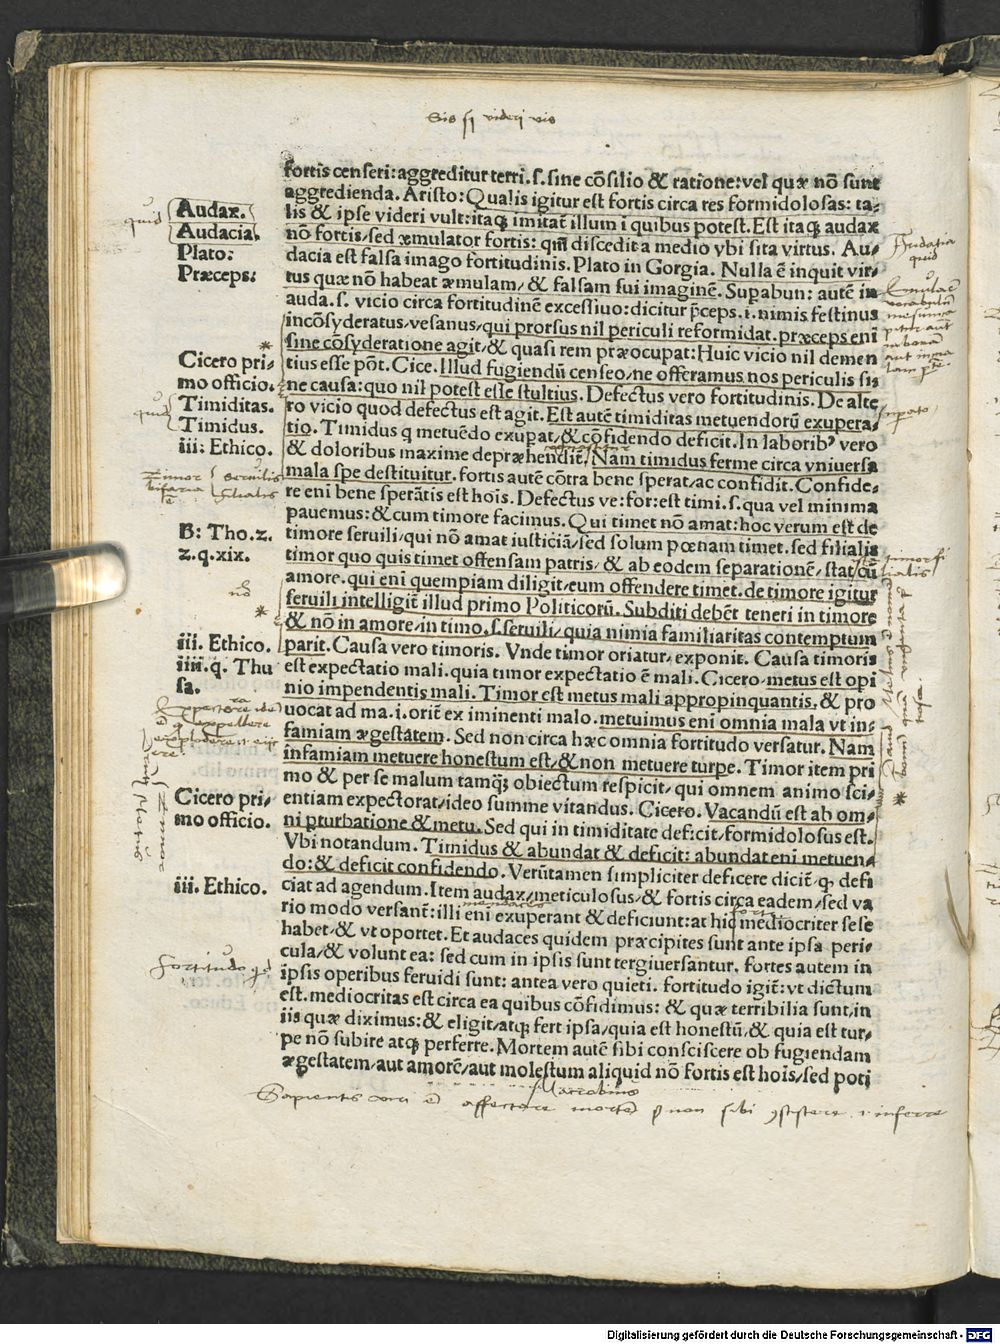 Sis qui videri vis
fortis censeri: aggreditur terri. s. sine cõsilio & ratione: vel quæ nõ sunt
aggredienda. Aristo: Qualis igitur est fortis circa res formidolosas: ta-
lis & ipse videri vult: itaq; imitat̃ illum ĩ quibus potest. Est itaq; audax
nõ fortis, sed æmulator fortis: qm̃ discedit a medio vbi sita virtus. Au-
dacia est falsa imago fortitudinis. Plato in Gorgia. Nulla ẽ inquit vir-
tus quæ nõ habeat æmulam, & falsam sui imaginẽ. Supabun: autẽ in
auda. s. vicio circa fortitudinẽ excessiuo: dicitur p̃ceps. i. nimis festinus
incõsyderatus, vesanus, qui prorsus nil periculi reformidat. præceps eni
sine cõsyderatione agit, & quasi rem præocupat: Huic vicio nil demen
tius esse põt. Cice. Illud fugiendũ censeo, ne offeramus nos periculis si-
ne causa: quo nil potest esse stultius. Defectus vero fortitudinis. De alte
ro vicio quod defectus est agit. Est autẽ timiditas metuendorũ exupera-
tio. Timidus q metuẽdo exupat, & cõfidendo deficit. In laborib⁹ vero
& doloribus maxime depræhendit̃. Nam timidus ferme circa vniuersa
mala spe destituitur. fortis autẽ cõtra bene sperat, ac confidit. Confide-
re eni bene sperãtis est hoĩs. Defectus ve: for: est timi. s. qua vel minima
pauemus: & cum timore facimus. Qui timet nõ amat: hoc verum est de
timore seruili, qui nõ amat iusticiã, sed solum pœnam timet. sed filialis
timor quo quis timet offensam patris, & ab eodem separationẽ, stat cũ
amore. qui eni quempiam diligit, eum offendere timet. de timore igitur
seruili intelligit̃ illud primo Politicorũ. Subditi debẽt teneri in timore
& nõ in amore, in timo. s. seruili, quia nimia familiaritas contemptum
parit. Causa vero timoris. Vnde timor oriatur, exponit. Causa timoris
est expectatio mali. quia timor expectatio ẽ mali. Cicero, metus est opi
nio impendentis mali. Timor est metus mali appropinquantis, & pro
uocat ad ma. i. orit̃ ex iminenti malo. metuimus eni omnia mala vt in-
famiam ægestatem. Sed non circa hæc omnia fortitudo versatur. Nam
infamiam metuere honestum est, & non metuere turpe. Timor item pri
mo & per se malum tamq̃; obiectum respicit, qui omnem animo sci-
entiam expectorat, ideo summe vitandus. Cicero. Vacandũ est ab om-
ni pturbatione & metu. Sed qui in timiditate deficit, formidolosus est.
Vbi notandum. Timidus & abundat & deficit: abundat eni metuen-
do: & deficit confidendo. Verũtamen simpliciter deficere dicit̃ q̃ defi
ciat ad agendum. Item audax, meticulosus, & fortis circa eadem, sed va
rio modo versant̃: illi eni exuperant & deficiunt: at hic mediocriter sese
habet, & vt oportet. Et audaces quidem præcipites sunt ante ipsa peri-
cula, & volunt ea: sed cum in ipsis sunt tergiuersantur. fortes autem in
ipsis operibus feruidi sunt: antea vero quieti. fortitudo igit̃: vt dictum
est. mediocritas est circa ea quibus cõfidimus: & quæ terribilia sunt, in
iis quæ diximus: & eligit, atq; fert ipsa, quia est honestũ, & quia est tur-
pe nõ subire atq; perferre. Mortem autẽ sibi consciscere ob fugiendam
ægestatem, aut amorẽ, aut molestum aliquid nõ fortis est hoĩs, sed poti
Audax.
Audacia.
Plato:
Præceps:
Cicero pri-
mo officio.
Timiditas.
Timidus.
iii: Ethico.
B: Tho. 2.
2. q. xix.
iii. Ethico.
iiii. q. Thu
sa.
Cicero pri-
mo officio.
iii. Ethico.
quid
quid
Timor
seruilis
filialis
Fortitudo quid
Audatia
quid
timor fi
lialis
Macrobius
Sapientis
affectare mortẽ
non sibi
inferre
Digitalisierung gefördert durch die Deutsche Forschungsgemeinschaft - DFG